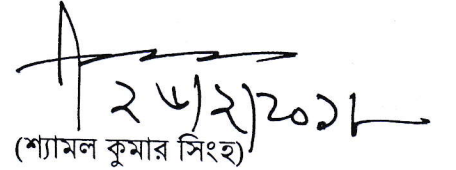 ২৮/২/২০১৮
(শ্যামল কুমার সিংহ)